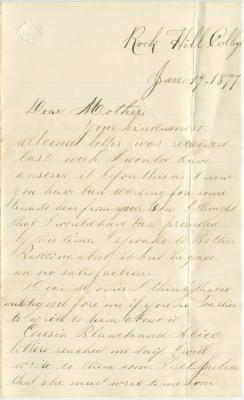 Rock Hill College
Jan. 19. 1877
Dear Mother,
Your kind & most
welcomed letter was received
last week I would have
ansered it before this as I now
you have ben wateing fore some
time to hear from your Son. I thought
that I would have ben promoted
by this time. I spoake to Bother
about it but he gave
me no satisfaction.
Dear Mother I think that it
would good fore me if you
to write to him about it.
Cousin Blanch and Alice
letter reached me safe I will
write to them soon. Tell
that she must write to me soon